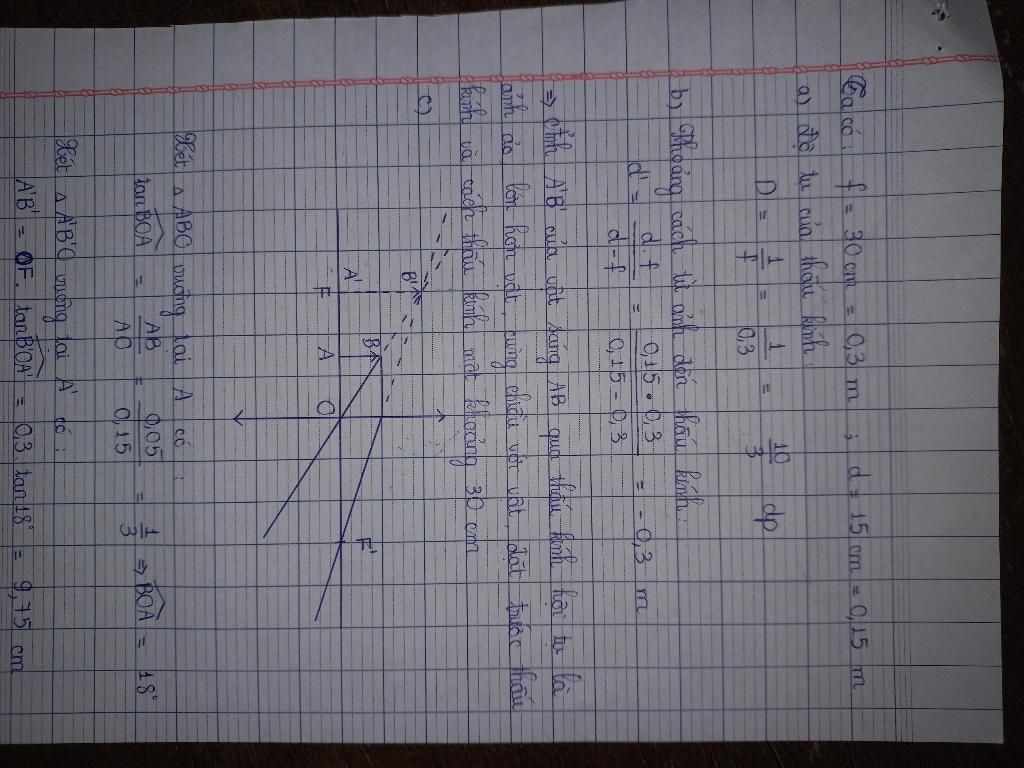 Ta có: f = 30 cm = 0,3 m ; d = 15 cm = 0,15 m
a) Độ tụ của thấu kính:
D = 1/f = 1/0,3 = 10/3 dp
b) Khoảng cách từ ảnh đến thấu kính:
d' = d.f/d-f = 0,15.0,3/0,15-0,3 = -0,3 m
=> Ảnh A'B' của vật sáng AB qua thấu kính hội tụ là
ảnh ảo, lớn hơn vật, cùng chiều với vật, đặt trước thấu
kính và cách thấu kính một khoảng 30 cm
c)
B' B
A' A O F'
F
Xét △ ABO vuông tại A có:
tan BOA = AB/AO = 0,05/0,15 = 1/3 => BOA = 18°
Xét △ A'B'O vuông tại A' có:
A'B' = OF. tan BOA' = 0,3. tan 18° = 9,75 cm